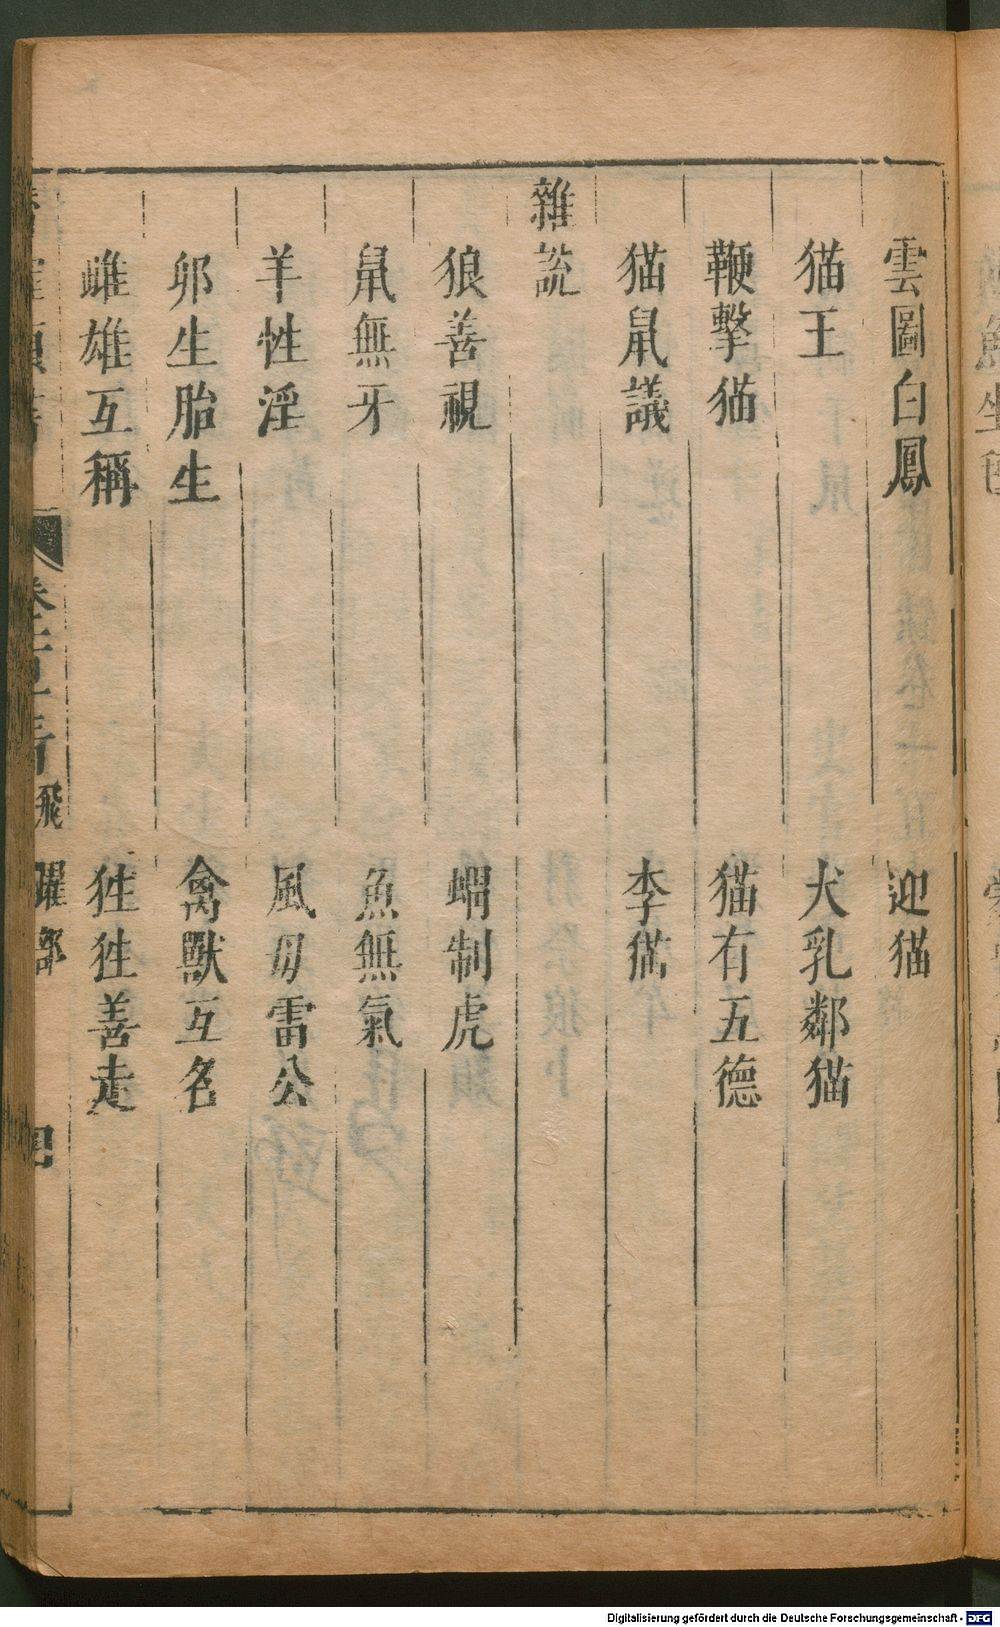 雲圖白鳳　迎猫
猫王　犬乳鄰猫
鞭擊猫　猫有五德
猫鼠議　李猫
雜説
狼善視　蝟制虎
鼠無牙　魚無氣
羊性淫　風母雷公
卵生胎生　禽獸互名
雌雄互稱　狌狌善走
飛躍部
Digitalisierung gefördert durch die Deutsche Forschungsgemeinschaft - DFG